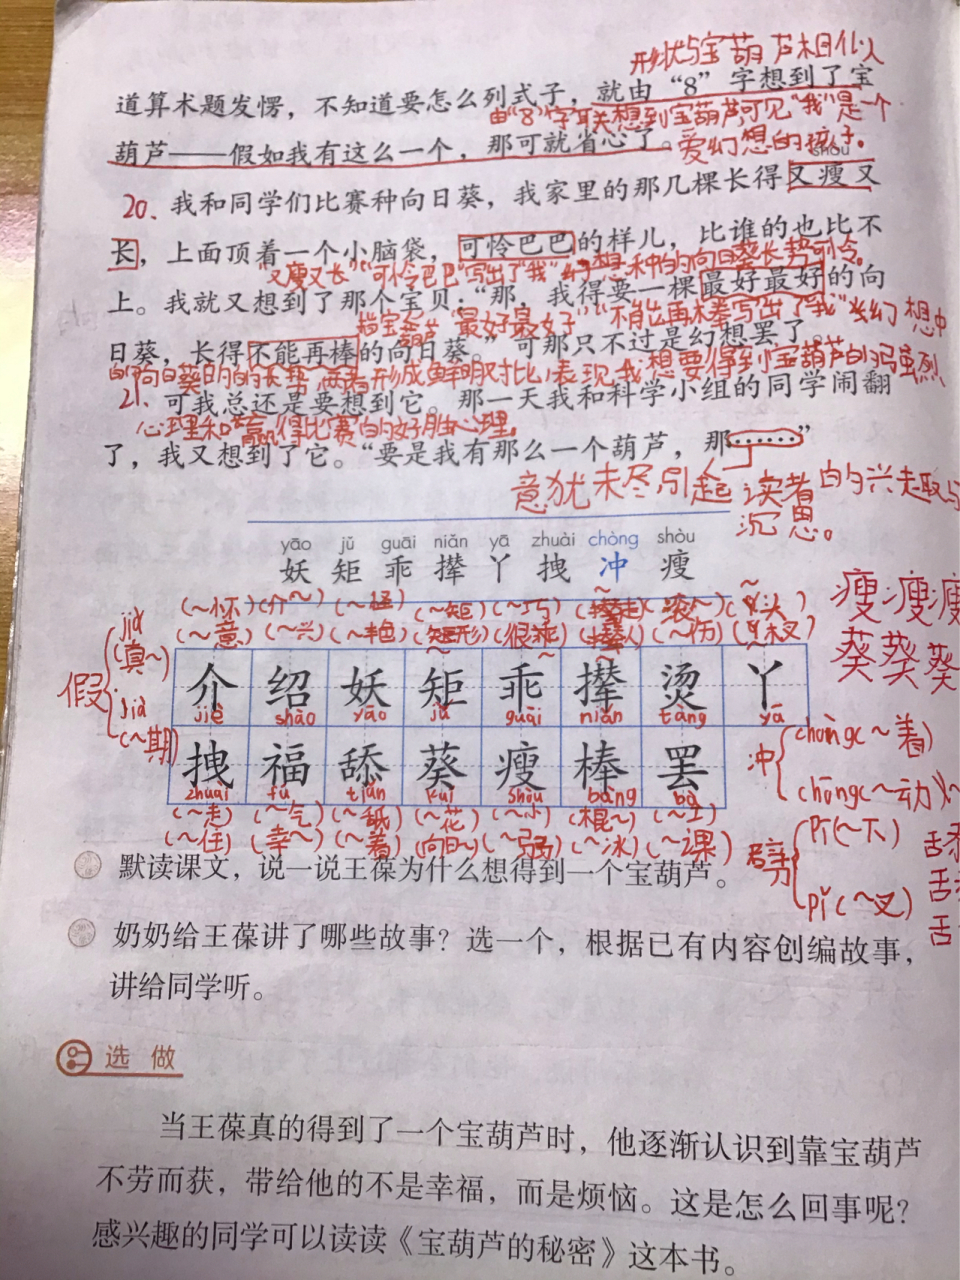 形状与宝葫芦相似
道算术题发愣，不知道要怎么列式子，就由“8”字想到了宝
由“8”字联想到宝葫芦可见“我”是一个
葫芦——假如我有这么一个，那可就省心了。
爱幻想的孩子。
shòu
20、我和同学们比赛种向日葵，我家里的那几棵长得又瘦又
长，上面顶着一个小脑袋，可怜巴巴的样儿，比谁的也比不
“又瘦又长”“可怜巴巴”写出了“我”幻想种的向日葵长势可怜。
上。我就又想到了那个宝贝：“那，我得要一棵最好最好的向
指宝葫芦 “最好最好”“不能再棒”写出了“我”幻想中
日葵，长得不能再棒的向日葵。”可那只不过是幻想罢了。
的向日葵的长势，两者形成鲜明对比，表现“我”想要得到宝葫芦的强烈
21、可我总还是要想到它。那一天我和科学小组的同学闹翻
心理和“赢得比赛”的好胜心理。
了，我又想到了它。“要是我有那么一个葫芦，那……”
意犹未尽引起读者的兴趣与
沉思。
yāo jǔ guāi niǎn yā zhuài chòng shòu
妖 矩 乖 撵 丫 拽 冲 瘦
瘦瘦瘦
葵葵葵
(～怀)(介～)(～怪)(～矩)(～巧)(～走)(滚～)(～头)
(～意)(～兴)(～艳)(矩形)(很乖)(撵人)(～伤)(丫杈)
假 jiǎ (真～) jià (～期)
介 绍 妖 矩 乖 撵 烫 丫
jiè shào yāo jǔ guāi niǎn tàng yā
拽 福 舔 葵 瘦 棒 罢
zhuài fú tiǎn kuí shòu bàng bà
(～走)(～气)(～舐)(～花)(～小)(棍～)(～工)
(～住)(幸～)(～着)(向日～)(～弱)(～冰)(～课)
冲 chòng(～着) chōng(～动)
劈 pī(～下) pǐ(～叉)
默读课文，说一说王葆为什么想得到一个宝葫芦。
奶奶给王葆讲了哪些故事？选一个，根据已有内容创编故事，
讲给同学听。
选做
当王葆真的得到了一个宝葫芦时，他逐渐认识到靠宝葫芦
不劳而获，带给他的不是幸福，而是烦恼。这是怎么回事呢？
感兴趣的同学可以读读《宝葫芦的秘密》这本书。